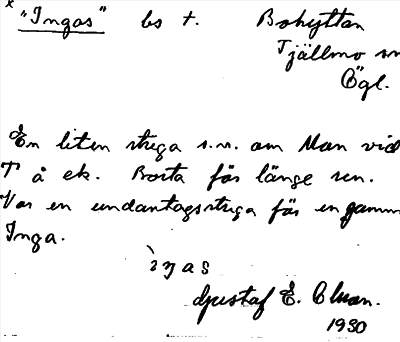 "Ingas" bs t. Bohyttan
Tjällmo sn
Ögl.
En liten stuga s.v. om Man vid
T å ek. Borta för länge sen.
Var en undantagsstuga för en gamm
Inga.
ìŋas
Gustaf E.
1930